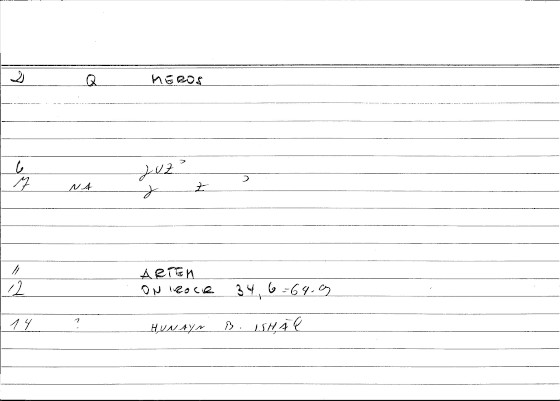 2 Q MEROS
6 JUZ'
7 NA J Z '
11 ARTEM
12 ONIROCR 34, 6 = 64-9
14 ? HUNAYN B. ISHĀQ